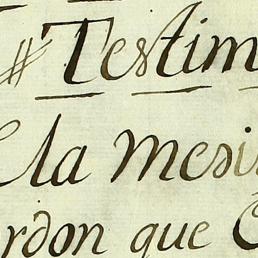 # Testim
la mesi
rdon que